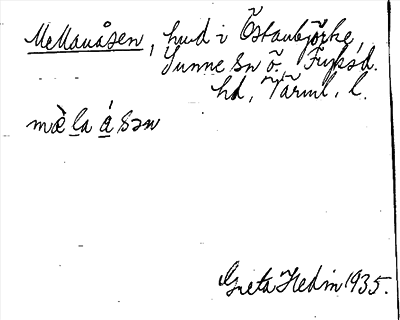 Mellanåsen, hmd i Östanbjörke,
Sunne sn ö. Fryksd.
hd, Värml. l.
mæ̀laásən
Greta Hedin 1935.